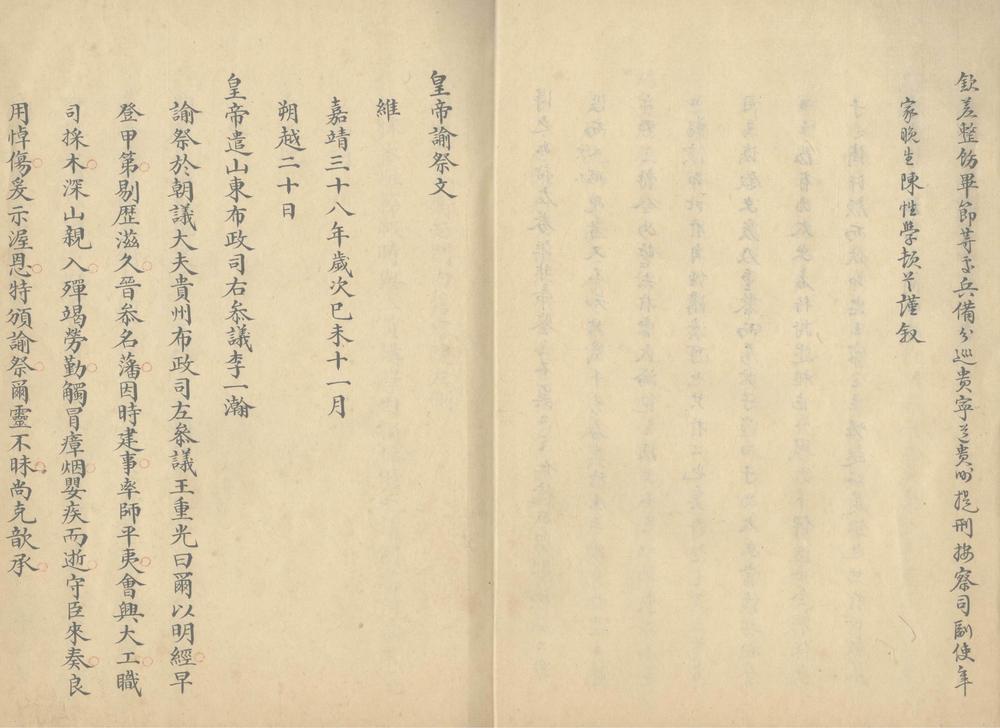 欽差整飭畢節等處兵備分巡貴寧道貴州提刑按察司副使年
家晚生陳性學頓首謹敘
皇帝諭祭文
維
嘉靖三十八年歲次巳未十一月
朔越二十日
皇帝遣山東布政司右叅議李一瀚
諭祭於朝議大夫貴州布政司左叅議王重光曰爾以明經早
登甲第剔歷滋久晉叅名藩因時建事率師平夷會興大工職
司採木深山親入殫竭勞勤觸冒瘴烟嬰疾而逝守臣來奏良
用悼傷爰示渥恩特頒諭祭爾靈不昧尚克歆承